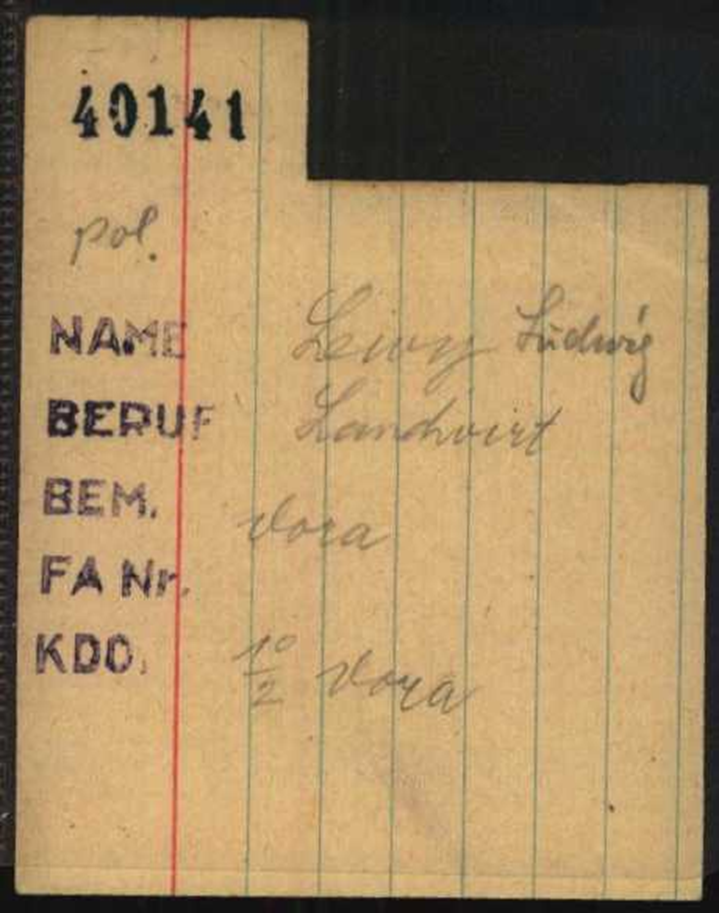 40141
pol.
NAME Ludwig
BERUF Landwirt
BEM. Dora
FA Nr.
KDO. 10/2 Dora